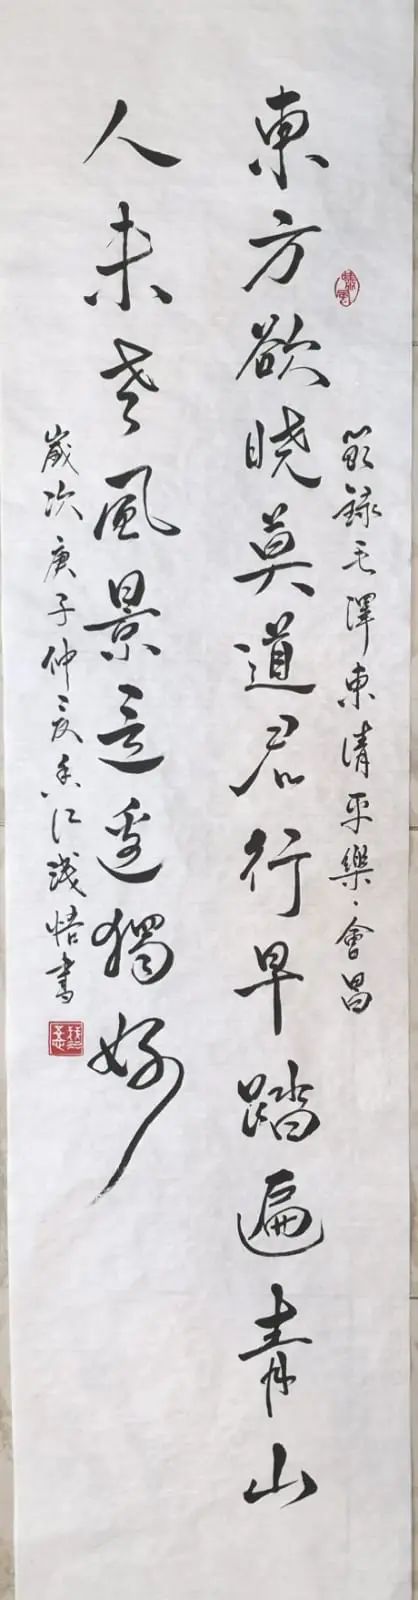 節錄毛澤東清平樂·會昌
東方欲晓莫道君行早踏遍青山
人未老風景這邊獨好
歲次庚子仲夏香江悟書